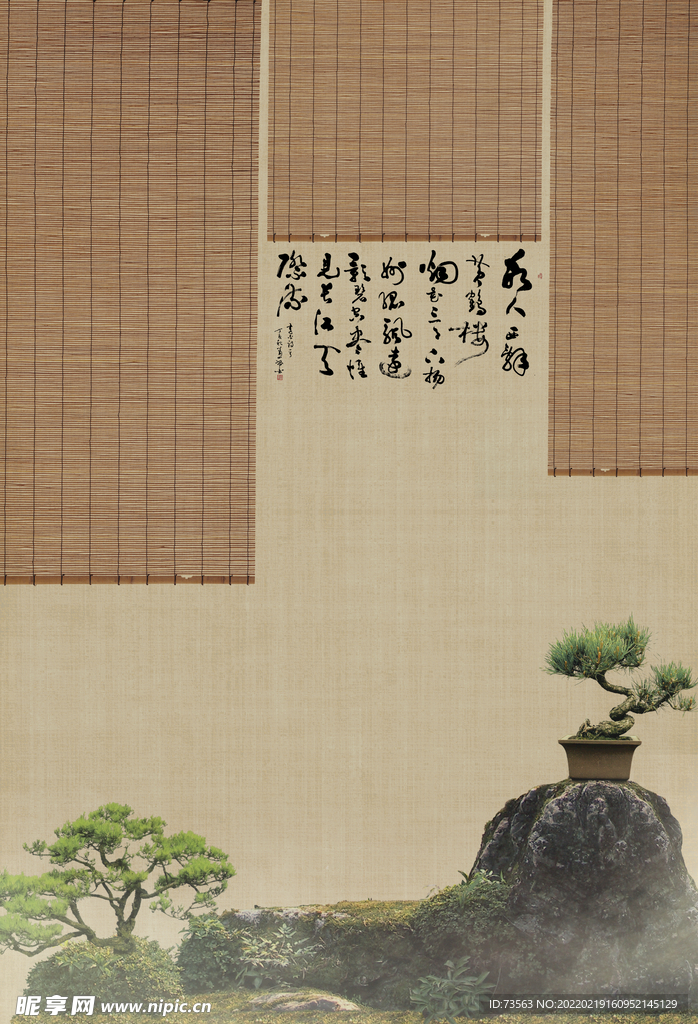 故人西辭
黄鹤楼
烟花三月下扬
州孤帆遠
影碧空尽惟
见长江天
際流
昵享网 www.nipic.cn
ID:73563 NO:20220219160952145129